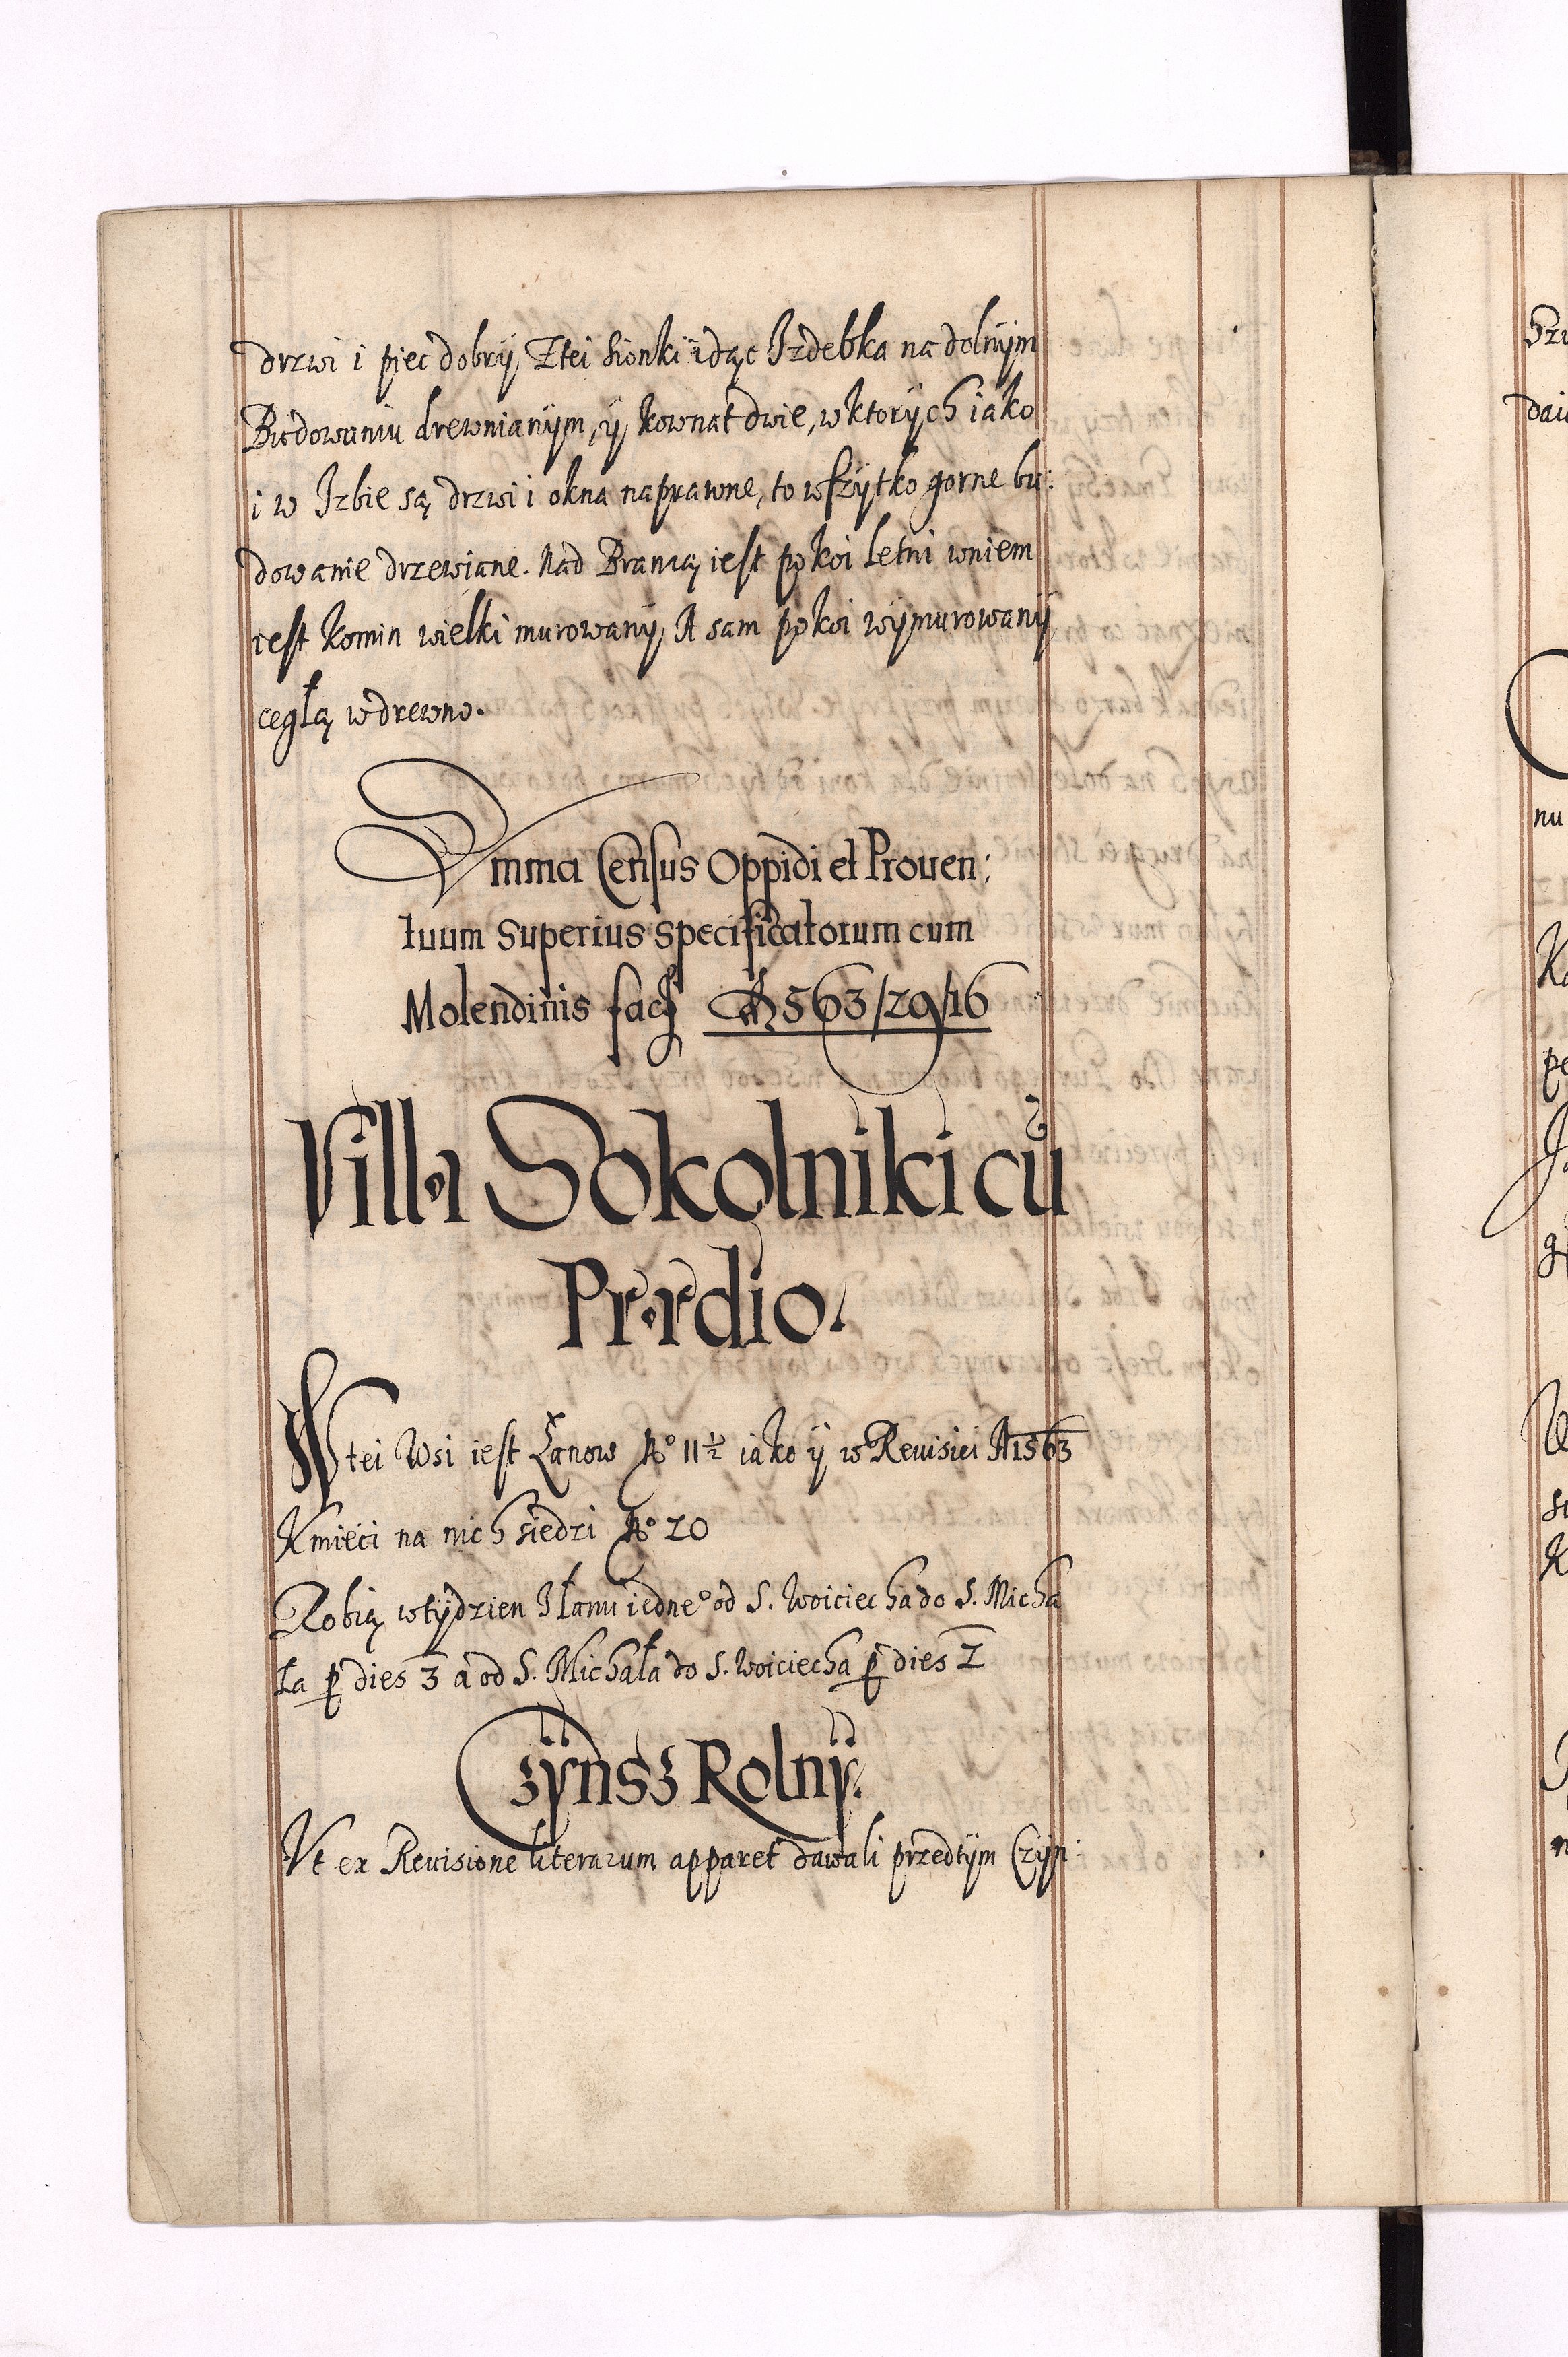 drzwi i piec dobrÿ, Ztei sionki idąc Izdebka na dolnÿm
Budowaniu drewnianÿm, ÿ kownat dwie, w ktorÿch iako
i w Izbie są drzwi i okna naprawne, to wszÿtko gorne bu:
dowanie drzewiane. Nad Bramą iest pokoi letni wniem
iest komin wielki murowanÿ, A sam pokoi wÿmurowanÿ
cegłą wdrewno.
Summa Census Oppidi et Prouen:
tuum Superius specificatorum cum
Molendinis facit fl 563/29/16
Villa Sokolniki cū
Prædio.
W tei Wsi iest Łanow No 11½ iako ÿ w Reuisiei A1563
Kmieci na nich siedzi No 20
Robią wtÿdzien Słanu iedneo od S. Woiciecha do S. Micha
ła p dies 3 a od S. Michała do S. Woiciecha p dies 2
Czÿnsz Rolnÿ.
Vt ex Reuisione literarum apparet dawali przedtÿm Czÿn:
Ka
pe
nu